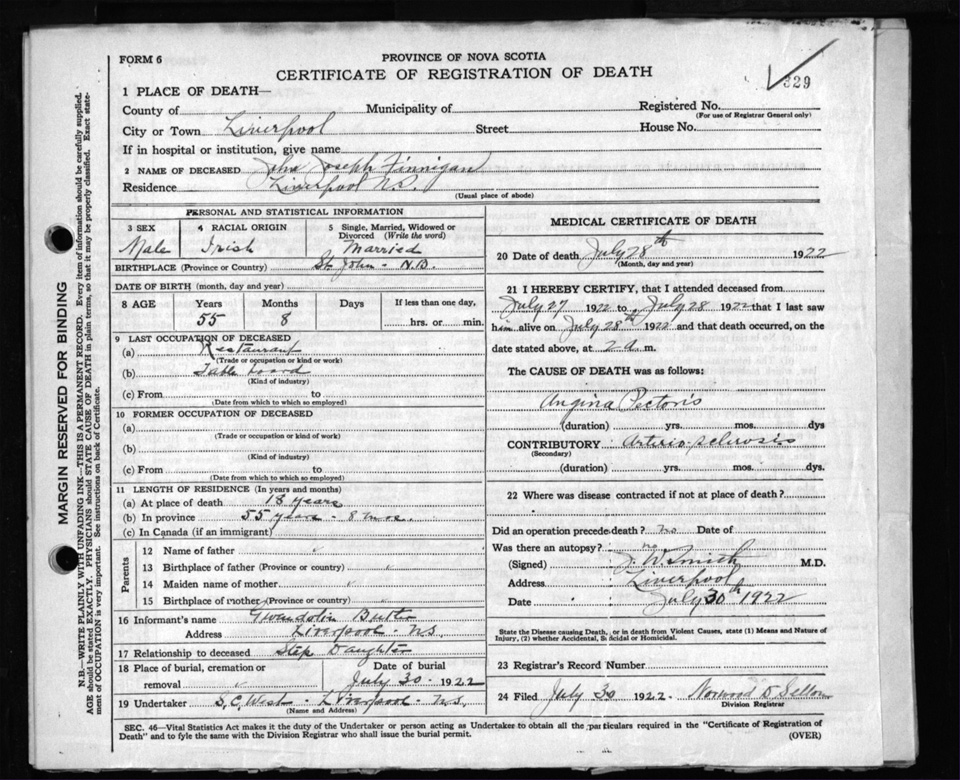 FORM 6
PROVINCE OF NOVA SCOTIA
CERTIFICATE OF REGISTRATION OF DEATH
329
1 PLACE OF DEATH—
County of Municipality of Registered No.
(For use of Registrar General only)
City or Town Liverpool Street House No.
If in hospital or institution, give name
2 NAME OF DECEASED John Joseph Finnigan
Residence Liverpool N.S.
(Usual place of abode)
PERSONAL AND STATISTICAL INFORMATION
3 SEX 4 RACIAL ORIGIN 5 Single, Married, Widowed or Divorced (Write the word)
Male Irish Married
BIRTHPLACE (Province or Country) St. John - N.B.
DATE OF BIRTH (month, day and year)
8 AGE Years Months Days If less than one day,
55 8 hrs. or min.
9 LAST OCCUPATION OF DECEASED
(a) Restaurant
(Trade or occupation or kind or work)
(b) Table board
(Kind of industry)
(c) From to
(Date from which to which so employed)
10 FORMER OCCUPATION OF DECEASED
(a)
(Trade or occupation or kind of work)
(b)
(Kind of industry)
(c) From to
(Date from which to which so employed)
11 LENGTH OF RESIDENCE (In years and months)
(a) At place of death 18 years
(b) In province 55 years - 8 mos.
(c) In Canada (if an immigrant)
Parents
12 Name of father
13 Birthplace of father (Province or country)
14 Maiden name of mother
15 Birthplace of mother (Province or country)
16 Informant's name Gwendolin
Address Liverpool - N.S.
17 Relationship to deceased Step Daughter
18 Place of burial, cremation or removal Date of burial
July 30 - 1922
19 Undertaker S.C. West - Liverpool - N.S.
(Name and Address)
MEDICAL CERTIFICATE OF DEATH
20 Date of death July 28th 1922
(Month, day and year)
21 I HEREBY CERTIFY, that I attended deceased from
July 27 1922 to July 28 1922 that I last saw
him alive on July 28th 1922 and that death occurred, on the
date stated above, at 2 a m.
The CAUSE OF DEATH was as follows:
Angina Pectoris
(duration) yrs. mos. dys
CONTRIBUTORY Arterio-sclerosis
(Secondary)
(duration) yrs. mos. dys.
22 Where was disease contracted if not at place of death?
Did an operation precede death? no Date of
Was there an autopsy? no
(Signed) J. W. Smith M.D.
Address Liverpool
Date July 30th 1922
State the Disease causing Death, or in death from Violent Causes, state (1) Means and Nature of
Injury, (2) whether Accidental, Suicidal or Homicidal.
23 Registrar's Record Number
24 Filed July 30 1922 Norwood
Division Registrar
SEC. 46—Vital Statistics Act makes it the duty of the Undertaker or person acting as Undertaker to obtain all the particulars required in the "Certificate of Registration of
Death" and to fyle the same with the Division Registrar who shall issue the burial permit.
(OVER)
MARGIN RESERVED FOR BINDING
N.B.—WRITE PLAINLY WITH UNFADING INK—THIS IS A PERMANENT RECORD. Every item of information should be carefully supplied.
AGE should be stated EXACTLY. PHYSICIANS should STATE CAUSE OF DEATH in plain terms, so that it may be properly classified. Exact state-
ment of OCCUPATION is very important. See instructions on back of Certificate.